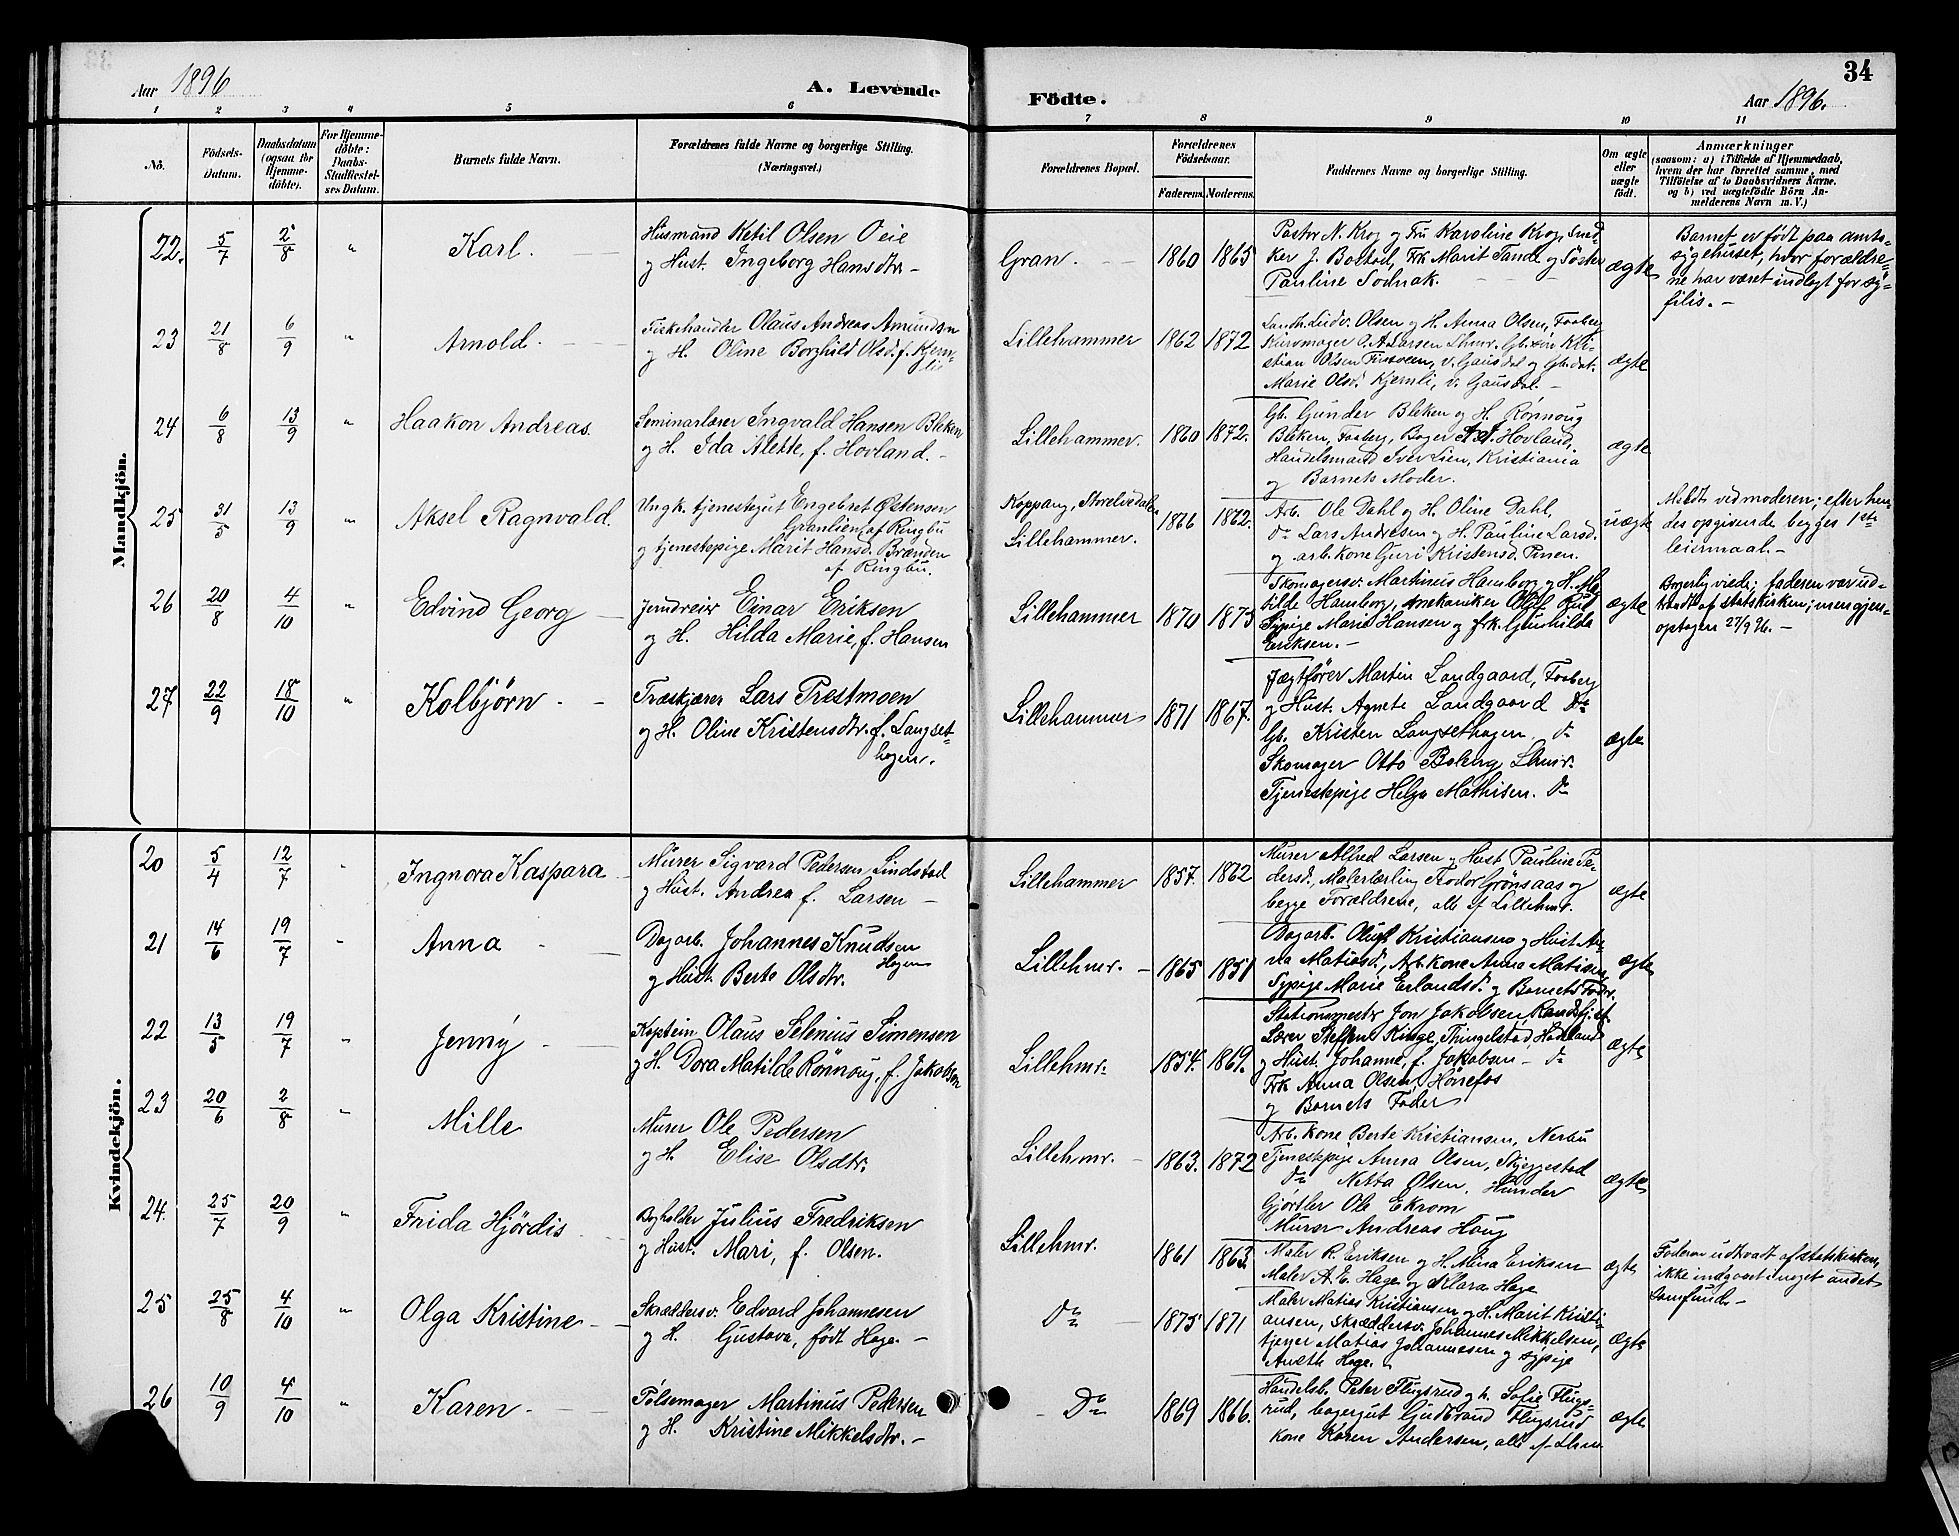 34
Aar 1896
A. Levende
Födte.
Aar 1896.
1 2 3 4 5 6 7 8 9 10 11
No.
Födsels-Datum.
Daabsdatum (ogsaa for Hjemme-döbte).
For Hjemme-döbte: Daabs-Stadfæstel-ses Datum.
Barnets fulde Navn.
Forældrenes fulde Navne og borgerlige Stilling. (Næringsvei.)
Forældrenes Bopæl.
Forældrenes Födselsaar.
Faderens. Moderens.
Faddernes Navne og borgerlige Stilling.
Om ægte eller uægte födt.
Anmærkninger
(saasom: a) i Tilfælde af Hjemmedaab,
hvem der har forrettet samme, med
Tilföielse af to Daabsvidners Navne,
og b) ved uægtefödte Börn An-
melderens Navn m. V.)
Mandkjön.
22. 5/7 2/8 " Karl.
Husmand Ketil Olsen Oeie
og Hust. Ingeborg Hansdtr. -
Gran. 1860 1865
Pastor N. Krog og Fru Karoline Krog, Sned-
ker J. Bolstad, Frk Marit Tande og Søster
Pauline Sodnak.
ægte
Barnet er født paa amts-
sygehuset, hvor forældre-
ne har været indlagt for sy-
filis. -
23 21/8 6/9 " Arnold.
Fiskehandler Olaus Andreas Amundsen
og H. Oline Borghild Olsd. f. Kjern-
lis
Lillehammer 1862 1872
Landh. Ludv. Olsen og H. Anna Olsen, Faaberg
Kurvmager O. A. Larsen Lhmr. Gb. søn Kri-
stian Olsen, v. Gausdal og Gb. dat.
Marie Olsd. Kjernli, v. Gausdal. -
ægte
24 6/8 13/9 " Haakon Andreas.
Seminarlærer Ingvald Hansen Bleken
og H. Ida Alette, f. Hovland. -
Lillehammer. 1860 1872.
Gb. Gunder Bleken og H. Rønnoug
Bleken, Faaberg, Bager A. Hovland,
Handelsmand Iver Lien, Kristiania
og Barnets Moder.
ægte
25 31/5 13/9 " Aksel Ragnvald.
Ungk. tjenestegut Engebret Østensen
Granlien, af Ringbu
og tjenestepige Marit Hansd. Brænden
af Ringbu.
Koppang, Storelvedalen
Lillehammer. 1866 1862.
Arb. Ole Dahl og H. Oline Dahl,
Do Lars Andresen og H. Pauline Larsd.
og arb. kone Guri Kristensd.
uægte
Meldt ved moderen; efter hen-
des opgivende begges 1ste
leiermaal. -
26 20/8 4/10 " Edvind Georg
Jerndreier Einar Eriksen
og H. Hilda Marie, f. Hansen
Lillehammer 1870 1875
Skomagersv. Martinus Hamborg og H. Ma-
tilde Hamborg, mekaniker Oluf Rud
Sypige Marie Hansen og frk. Gunhilda
Eriksen. -
ægte
Borgerlig viede; faderen var ud-
traadt af statskirken; men gjen-
optagen 27/9 96. -
27 22/9 18/10 " Kolbjørn.
Træskjærer Lars Prestmoen
og H. Oline Kristensdtr. f. Langset-
hagen.
Lillehammer 1871 1867.
Jægtfører Martin Landgaard, Faaberg
og Hust. Agnete Landgaard Do
Gb. Kristen Langsethagen. do
Skomager Otto Boleng, Lhmr.
Tjenestepige Helga Mathisen. Do
ægte
Kvindekjön.
20 5/4 12/7 " Ingnora Kaspara
Murer Sigvard Pedersen Lindstad
og Hust. Andrea f. Larsen -
Lillehammer 1857. 1862
Murer Alfred Larsen og Hust Pauline Pe-
dersd., Malerlærling Teodor Grønsaas og
begge Forældrene, alle af Lillehmr.
ægte
21 14/6 19/7 " Anna
Dagarb. Johannes Knudsen
Hagen
og Hust. Berte Olsdtr.
Lillehmr. - 1865 1851
Dagarb. Oluf Kristiansen og Hust An-
na Matiasd., Arb. kone Anna Matisen,
Sypige Marie Erlandsd. og Barnets Fader.
ægte
22 13/5 19/7 " Jenny
Kaptein Olaus Selenius Simensen
og H. Dora Matilde Rønnoug, f. Jakobsen
Lillehmr. 1854. 1869.
Stationsmester Jon Jakobsen, Randsfjord.
Lærer Steffen Kinge, Thingelstad Hadeland
og Hust. Johanne, f. Jakobsen - do
Frk Anna Olsen, Hønefos
og Barnets Fader
ægte
23 20/6 2/8 " Mille
Murer Ole Pedersen
og H. Elise Olsdtr.
Lillehmr. - 1863. 1872
Arb. kone Berte Kristiansen, Nerbu
Tjenestepige Anna Olsen, Skjeggestad
Do Netta Olsen, Hunder
Gjørtler Ole Ekrom
Murer Andreas Haug
ægte
24. 25/7 20/9 " Frida Hjørdis
Bogholder Julius Fredriksen
og Hust. Mari, f. Olsen.
Lillehmr. 1861 1863.
Maler R. Eriksen og H. Mina Eriksen
Maler A. E. Hage og Klara Hage
ægte
Faderen udtraadt af statskirken,
ikke indgaaet i noget andet
Samfund. -
25 25/8 4/10 " Olga Kristine -
Skræddersv. Edvard Johannesen
og H. Gustava, født Hage. -
Do 1875 1871
Maler Matias Kristiansen og H. Marit Kristi-
ansen, skræddersv. Johannes Mikkelsen,
tjener Matias Johannesen og sypige
Anette Hage.
ægte
26 10/9 4/10 " Karen.
Pølsemager Martinus Pedersen
og H. Kristine Mikkelsdtr. -
- Do 1869 1866.
Handelsb. Peter Flugsrud og h. Sofie Flugs-
rud, bagergut Gudbrand Flugsrud
kone Karen Andersen, alle af Lhmr
ægte